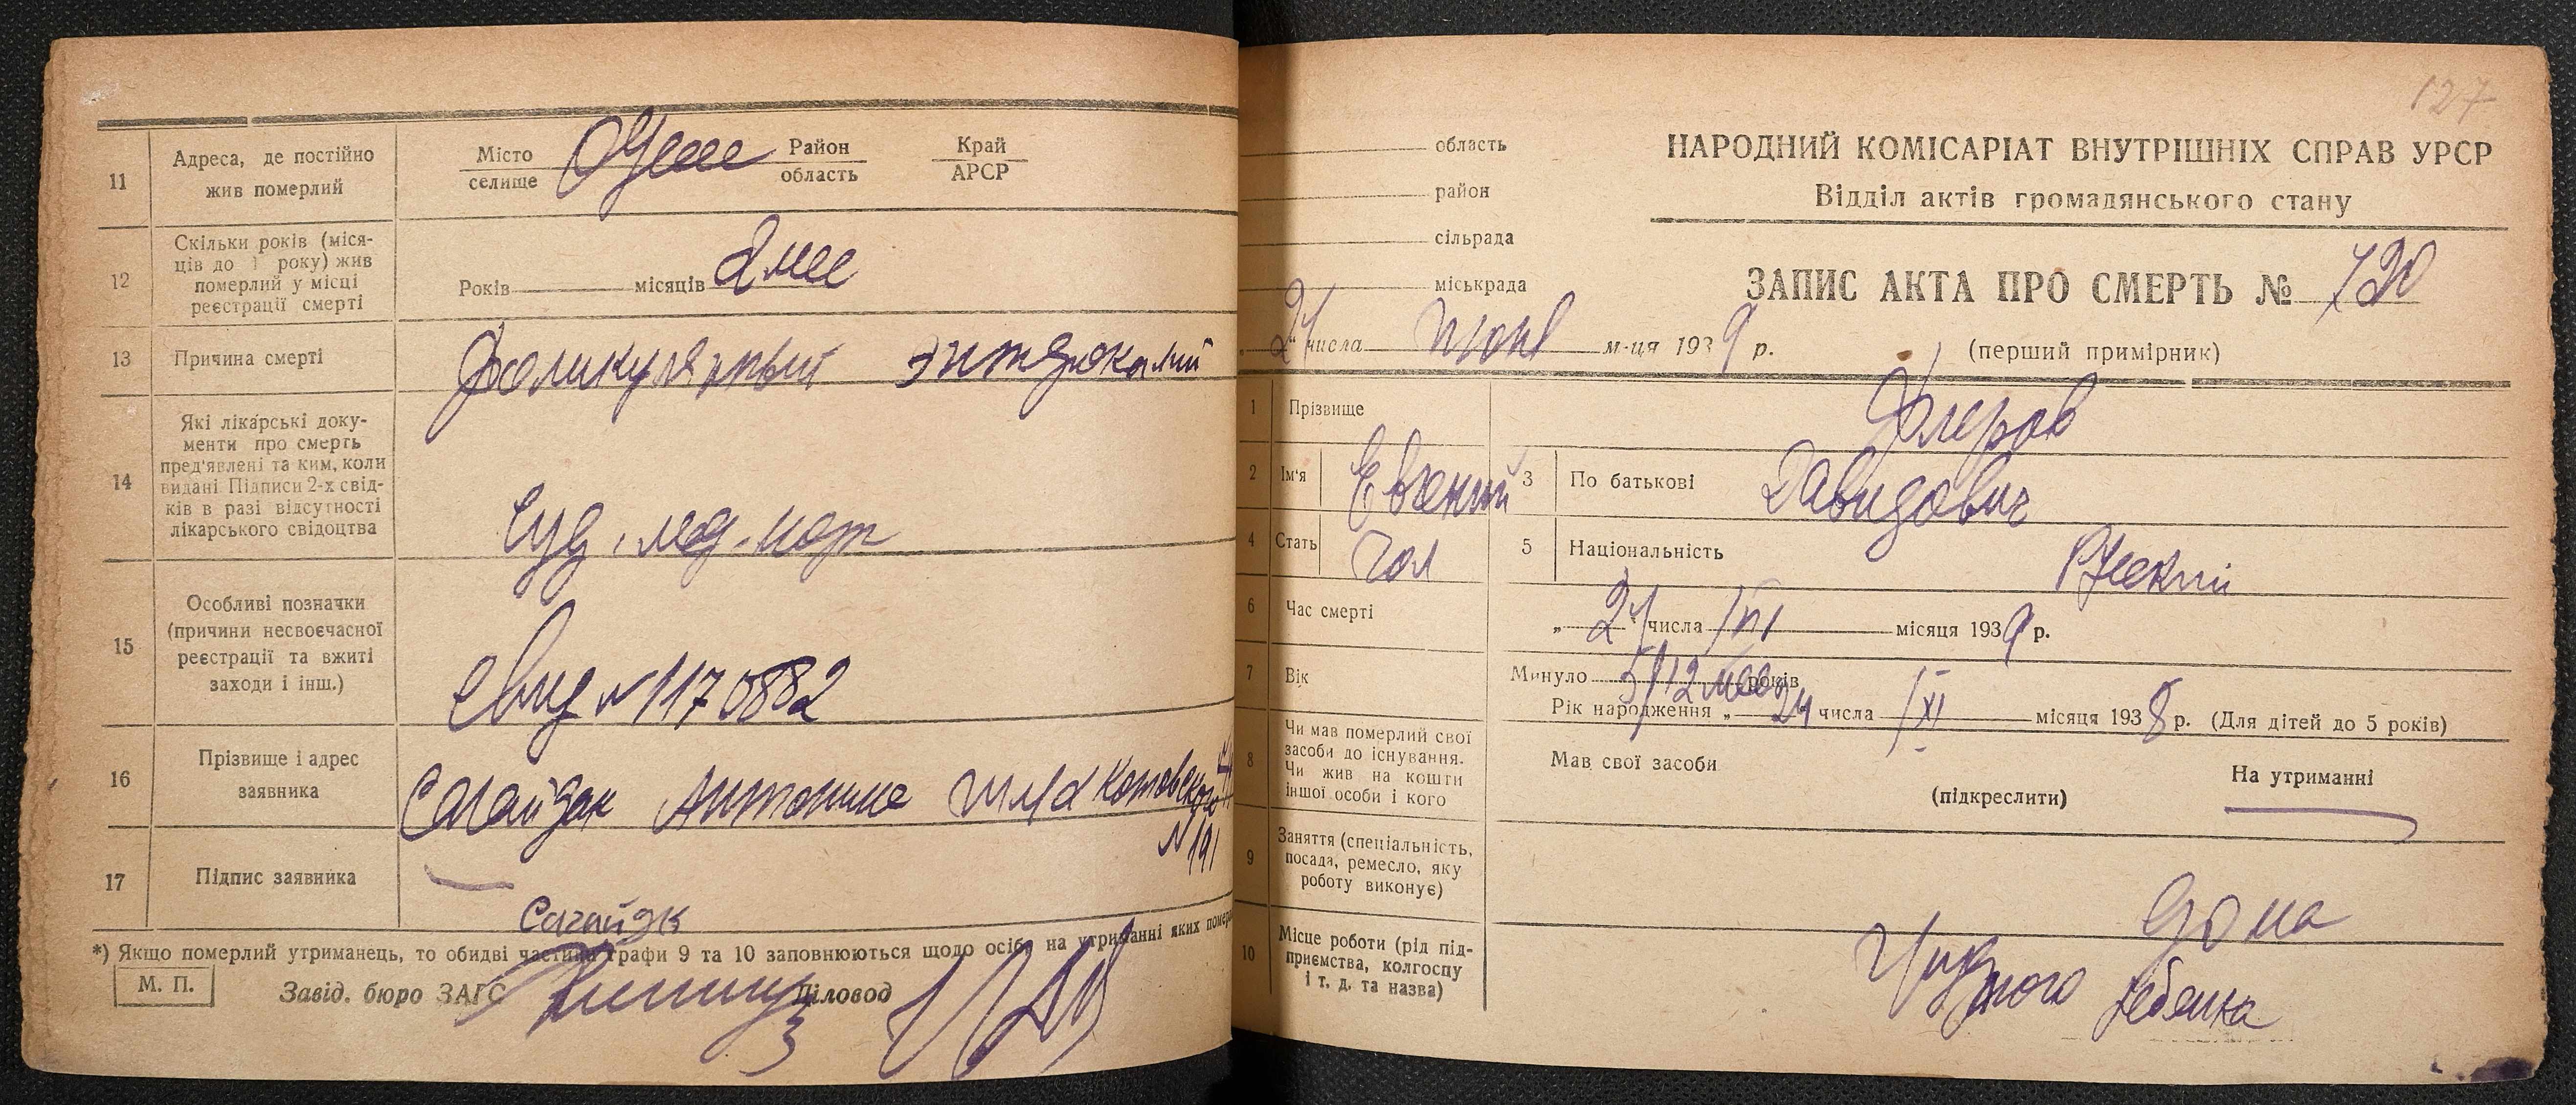 11 Адреса, де постійно жив померлий
Місто селище Одеса Район область Край АРСР
12 Скільки років (місяців до 1 року) жив померлий у місці реєстрації смерті
Років місяців 2 мес
13 Причина смерті
Фоликулярный энтероколит
14 Які лікарські документи про смерть пред'явлені та ким, коли видані Підписи 2-х свідків в разі відсутності лікарського свідоцтва
Суд. мед.
15 Особливі позначки (причини несвоєчасної реєстрації та вжиті заходи і інш.)
Свид N 1170882
16 Прізвище і адрес заявника
Сагайдак Антонина Котовского
N 191
17 Підпис заявника
Сагайдк
*) Якщо померлий утриманець, то обидві частини графи 9 та 10 заповнюються щодо осіб, на утриманні яких
М. П.
Завід. бюро ЗАГС Діловод
127
область
район
сільрада
міськрада
НАРОДНИЙ КОМІСАРІАТ ВНУТРІШНІХ СПРАВ УРСР
Відділ актів громадянського стану
ЗАПИС АКТА ПРО СМЕРТЬ № 720
„ 24 " числа м-ця 1939 р.
(перший примірник)
1 Прізвище Флеров
2 Ім'я Евгений 3 По батькові Давидович
4 Стать чол 5 Національність Русский
6 Час смерті
„ 24 " числа VI місяця 1939 р.
7 Вік
Минуло 5/12 мес років
Рік народження „ 24 числа XI місяця 1938 р. (Для дітей до 5 років)
8 Чи мав померлий свої засоби до існування. Чи жив на кошти іншої особи і кого
Мав свої засоби
(підкреслити)
На утриманні
9 Заняття (спеціальність, посада, ремесло, яку роботу виконує)
10 Місце роботи (рід підприємства, колгоспу і т. д. та назва)
дома
Грудного ребенка